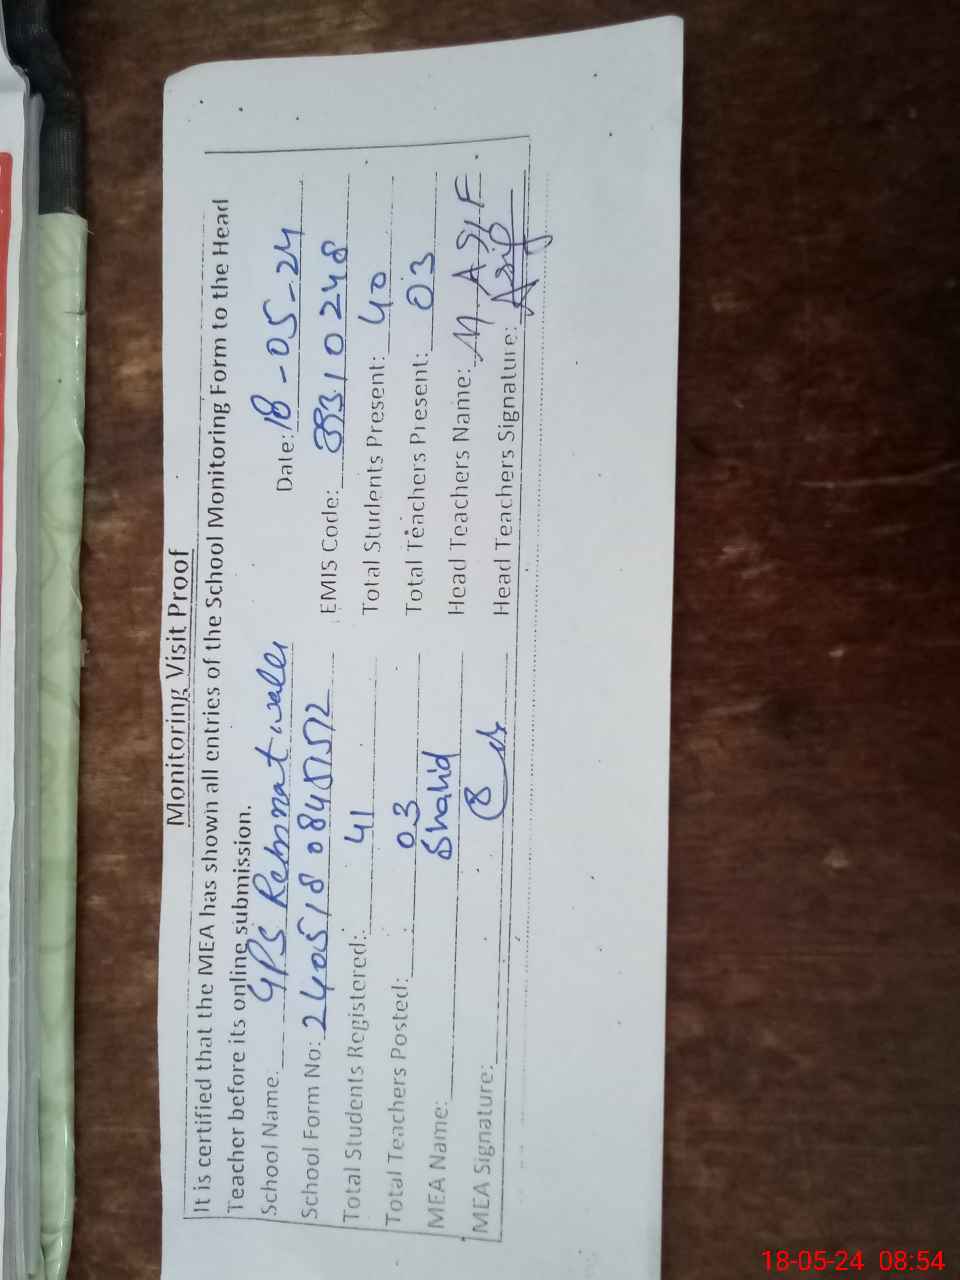 Monitoring Visit Proof
It is certified that the MEA has shown all entries of the School Monitoring Form to the Head
Teacher before its online submission.
School Name: GPS Rehmat wala Date: 18-05-24
School Form No: 240518 084 EMIS Code: 39310248
Total Students Registered: 41 Total Students Present: 40
Total Teachers Posted: 03 Total Teachers Present: 03
MEA Name: Shahid Head Teachers Name: M ASIF.
MEA Signature: Head Teachers Signature: Asif
18-05-24 08:54